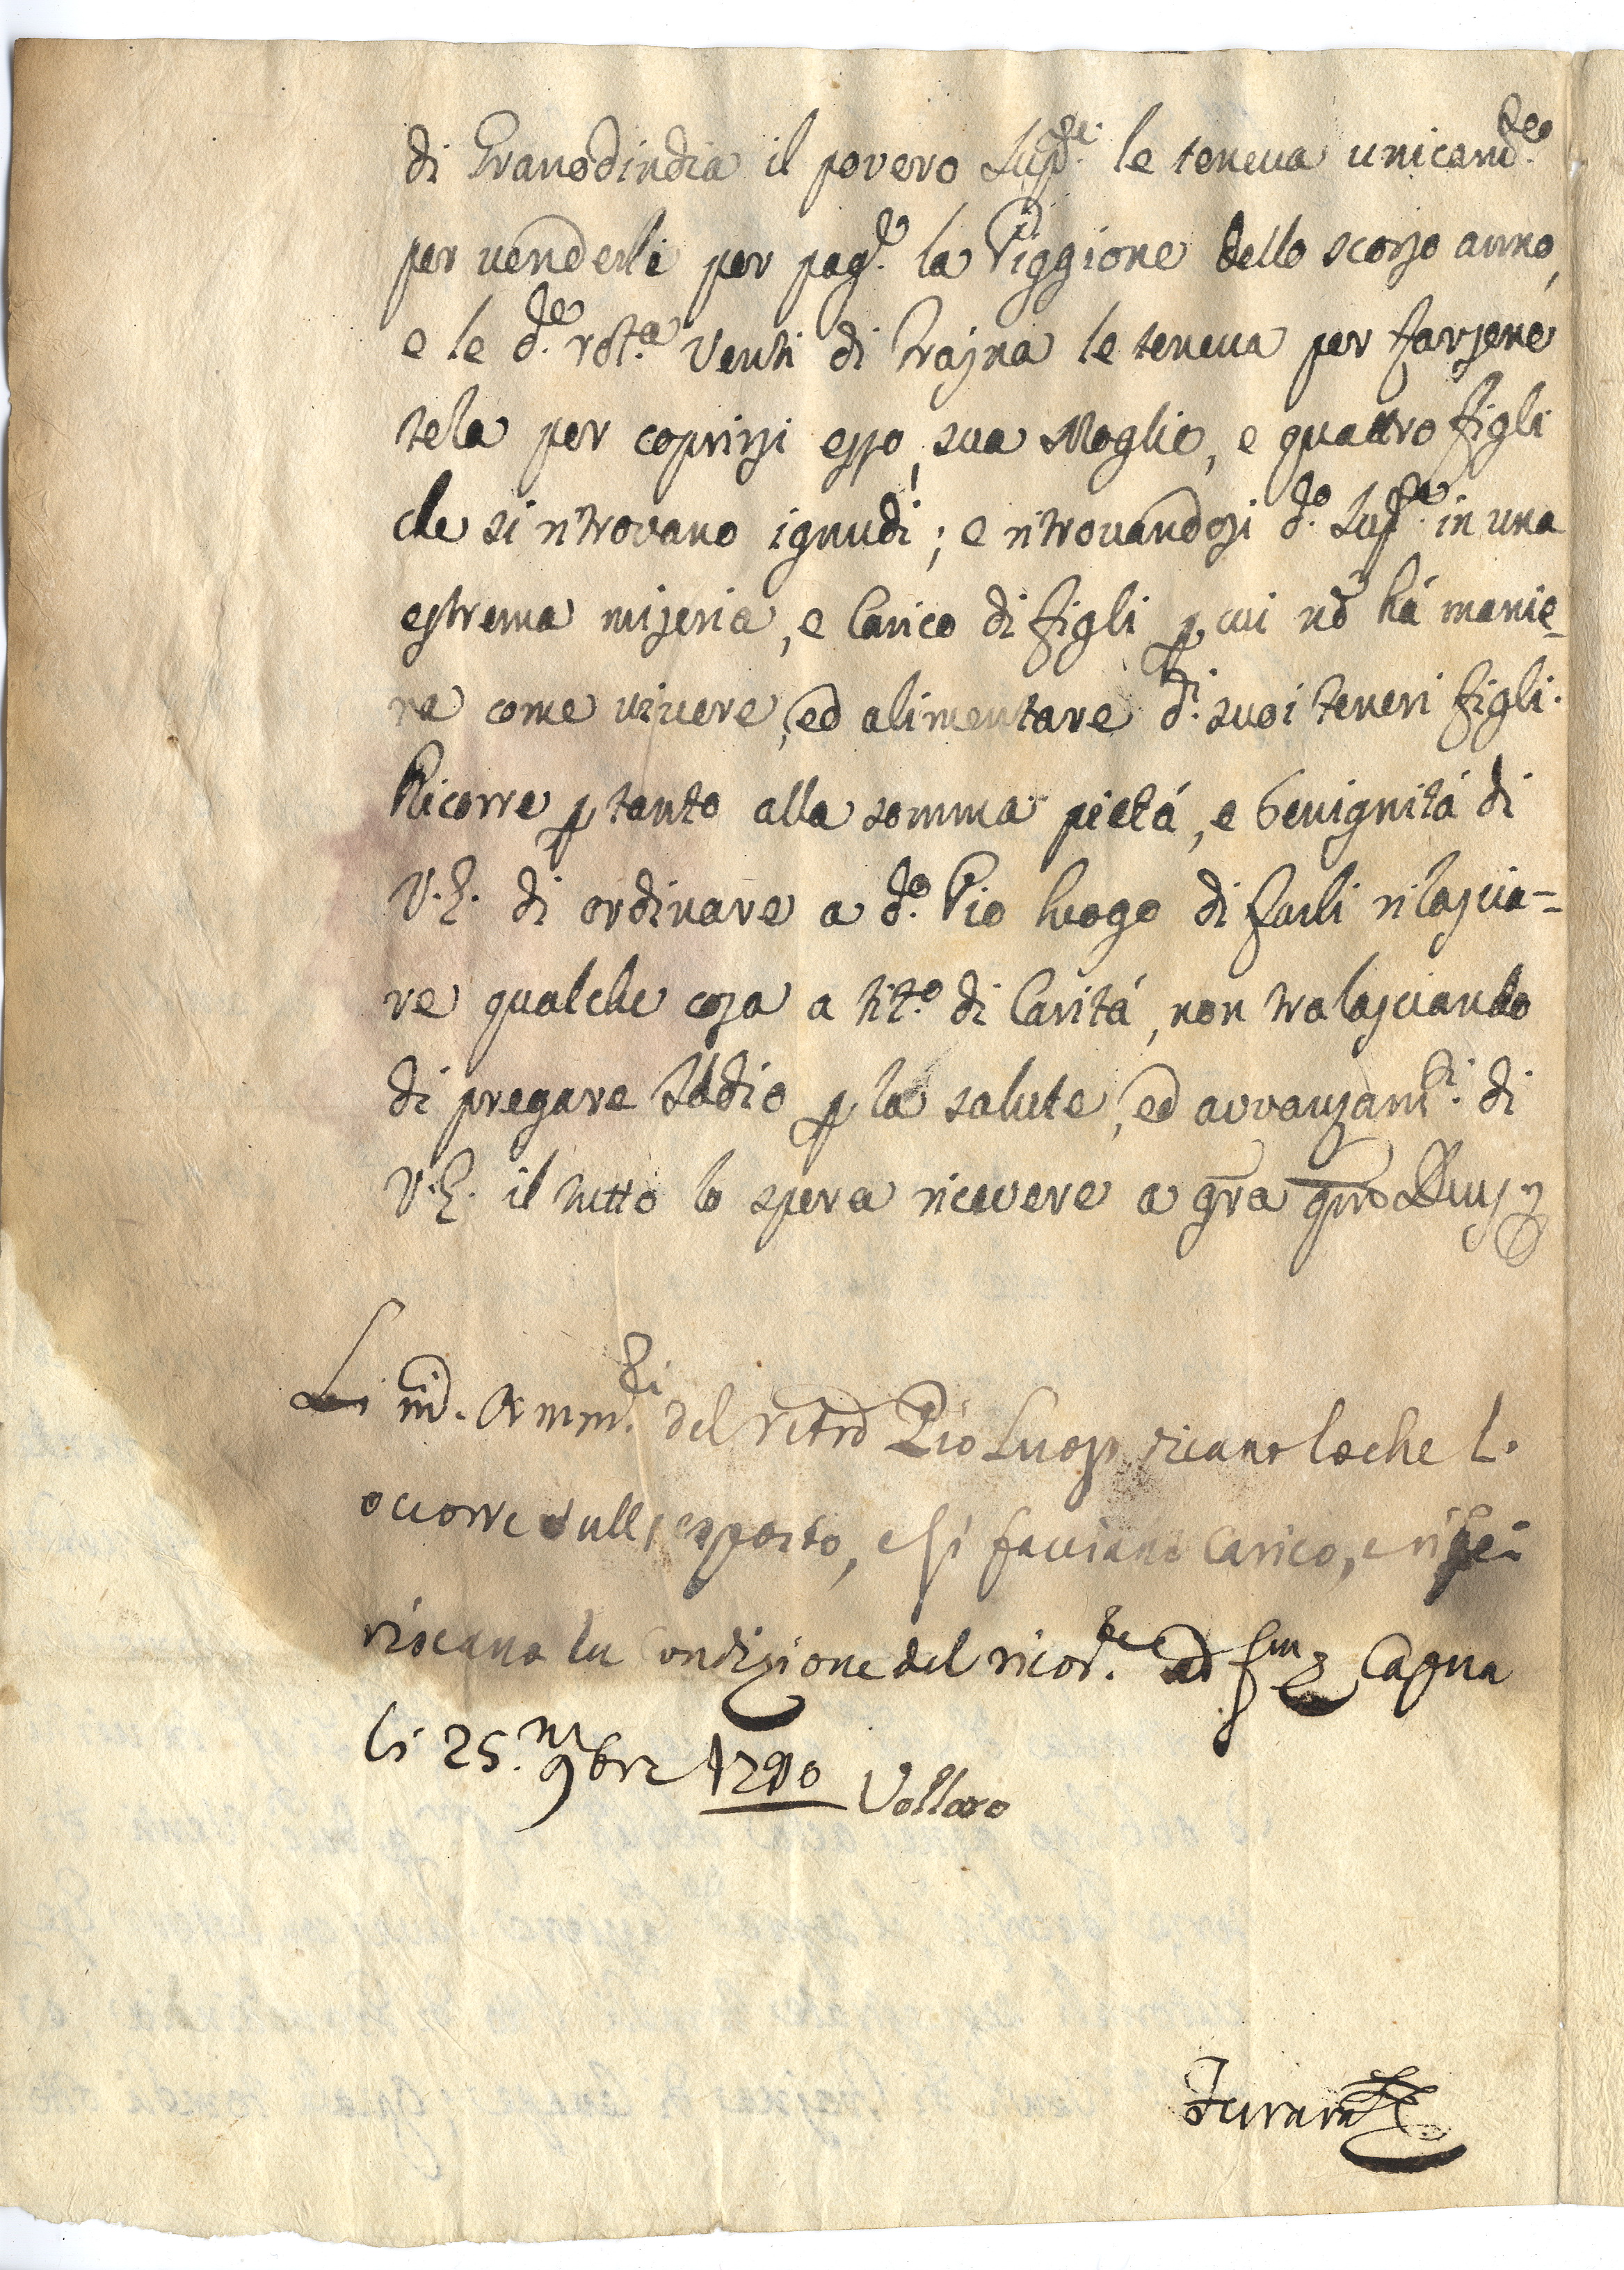 di Granodindia il povero Supp.te le teneva unicam.te
per venderle per pag.re la Piggione dello scorso anno,
e le d.e rot.a venti di Trajna le teneva per farsene
tela per coprirsi esso, sua Moglie, e quattro figli
che si ritrovano ignudi; e ritrovandosi d.o Supp.te in una
estrema miseria, e Carico di figli p cui nō há manie=
ra come vivere, ed alimentare d.i suoi teneri figli.
Ricorre p tanto alla somma pietá, e benignitá di
V.E. di ordinare a d.o Pio luogo di farli rilascia=
re qualche cosa a tit.o di Caritá, non tralasciando
di pregare Iddio p la salute, ed avvanzam.ti di
V.E. il tutto lo spera ricevere a gra
Li Amm.ri del Pio Luogo dicano loche l'
occorre sull'esposto, e si facciano Carico, e rife=
riscano la Condizione del ricor.te Capua
li 25. 9bre 1790 Vollaro